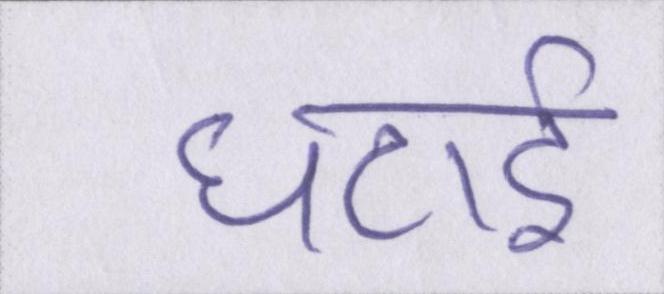 घटाई